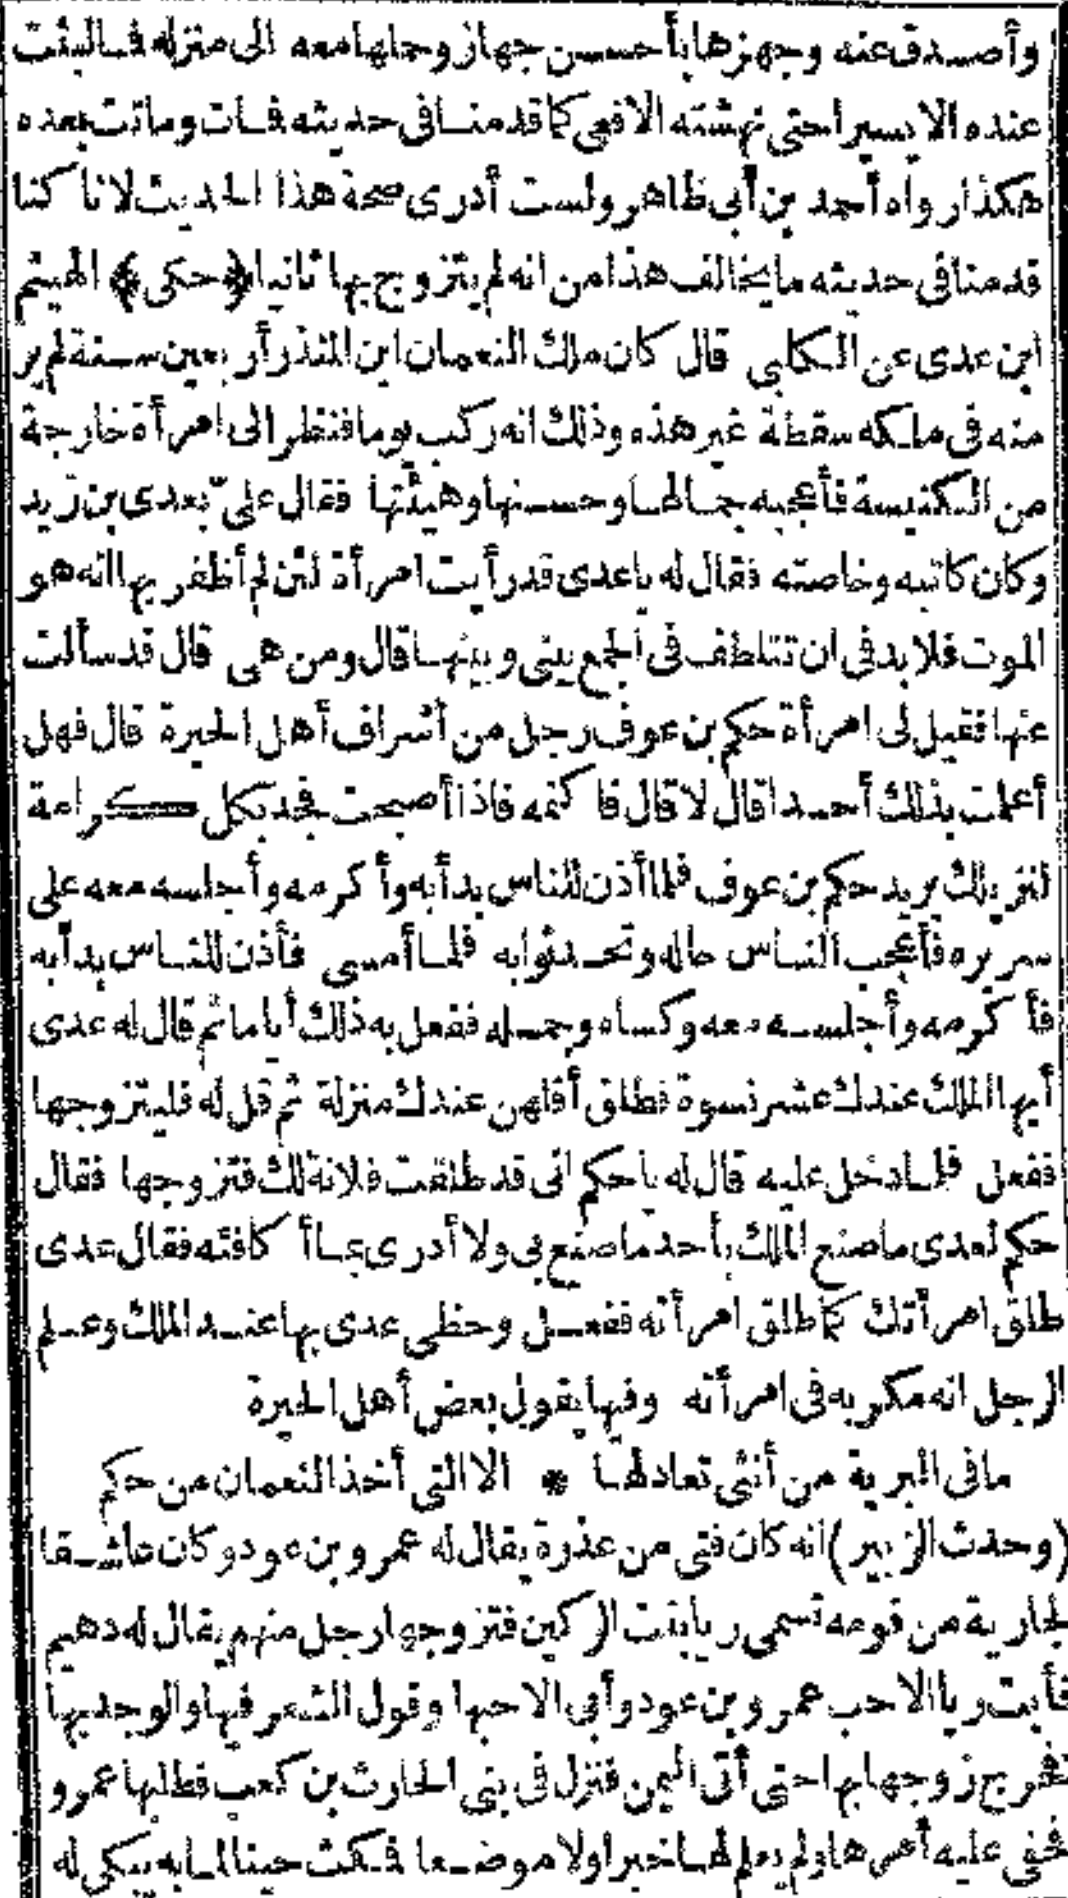 وأصدق عنه وجهزها بأحسن جهاز وحملها معه الى منزله فما لبثت
عنده الا يسيرا حتى نهشته الافعى كما قدمنا فى حديثه فمات وماتت بعده
هكذا رواه أحمد بن أبى طاهر ولست أدرى صحة هذا الحديث لانا كنا
قدمنا فى حديثه ما يخالف هذا من انه لم يتزوج بها ثانيا ﴿حكى﴾ الهيثم
ابن عدى عن الكلبى قال كان ملك النعمان ابن المنذر أربعين سنة لم ير
منه فى ملكه سقطة غير هذه وذلك انه ركب يوما فنظر الى امرأة خارجة
من الكنيسة فأعجبه جمالها وحسنها وهيئتها فقال علىّ بعدى بن زيد
وكان كاتبه وخاصته فقال له ياعدى قد رأيت امرأة لئن لم أظفر بها انه هو
الموت فلا بد فى ان تتلطف فى الجمع بينى وبينها قال ومن هى قال قد سألت
عنها فقيل لى امرأة حكم بن عوف رجل من أشراف أهل الحيرة قال فهل
أعلمت بذلك أحدا قال لا قال فاكتمه فاذا أصبحت فجد بكل كرامة
لنزيلك يريد حكم بن عوف فلما أذن للناس بدأ به وأكرمه وأجلسه معه على
سريره فأعجب الناس حاله وتحدثوا به فلما أمسى فأذن للناس بدأ به
فأكرمه وأجلسه معه وكساه وحمله ففعل به ذلك أياما ثم قال له عدى
أيها الملك عندك عشر نسوة فطلق أقلهن عندك منزلة ثم قل له فليتزوجها
ففعل فلما دخل عليه قال له ياحكم انى قد طلقت فلانة لك فتزوجها فقال
حكم لعدى ما صنع الملك بأحد ما صنع بى ولا أدرى بما أكافئه فقال عدى
طلق امرأتك كما طلق امرأته ففعل وحظى عدى بها عند الملك وعلم
الرجل انه مكر به فى امرأته وفيها يقول بعض أهل الحيرة
ما فى البرية من أنثى تعادلها * الا التى أخذ النعمان من حكم
(وحدث الزبير) انه كان فتى من عذرة يقال له عمرو بن عود وكان عاشقا
لجارية من قومه تسمى ريا بنت الركين فتزوجها رجل منهم يقال له دهيم
فأبت ريا الا حب عمرو بن عود وأبى الا حبها وقول الشعر فيها والوجد بها
فخرج زوجها بها حتى أتى اليمن فنزل فى بنى الحارث بن كعب فطلبها عمرو
فخفى عليه أمرها ولم يعلم لها خبرا ولا موضعا فمكث حينا لما به يبكى له